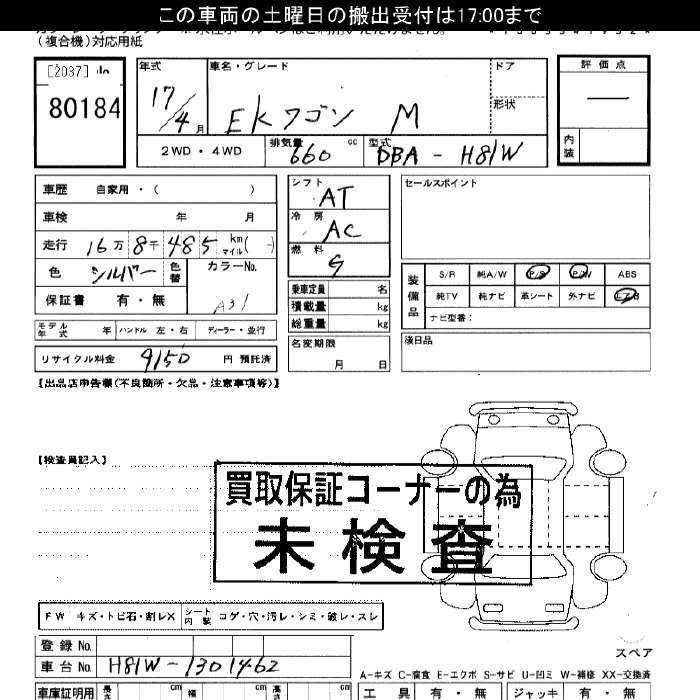 この車両の土曜日の搬出受付は17:00まで
(複合機)対応用紙
[2037]
80184
年式 17/4 月
車名・グレード EKワゴン M
ドア
形状
評価点
―
内装
2WD・4WD
排気量 660 cc
型式 DBA-H81W
車歴 自家用・( )
車検 年 月
走行 16万8千485km マイル( - )
色 シルバー 色替
カラーNo. A31
保証書 有・無
モデル年式 年 ハンドル 左・右 ディーラー・並行
リサイクル料金 9150 円 預託済
シフト AT
冷房 AC
燃料 G
乗車定員 名
積載量 kg
総重量 kg
名変期限 月 日
セールスポイント
装備品
S/R 純A/W P/S P/W ABS
純TV 純ナビ 革シート 外ナビ エアB
ナビ型番:
後日品
【出品店申告欄(不良箇所・欠品・注意事項等)】
【検査員記入】
買取保証コーナーの為
未検査
FW キズ・トビ石・割レX シート内装 コゲ・穴・汚レ・シミ・破レ・スレ
登録No.
車台No. H81W-1301462
スペア
A-キズ C-腐食 E-エクボ S-サビ U-凹ミ W-補修 XX-交換済
車庫証明用 長さ cm 幅 cm 高さ cm
工具 有・無 ジャッキ 有・無